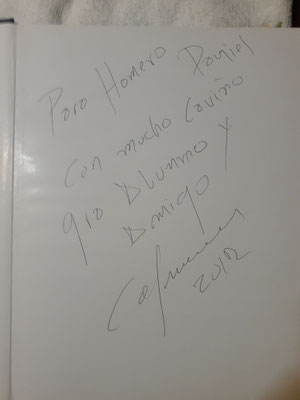 Para Homero Daniel
Con mucho Cariño
gra Alumno y
Amigo
2012